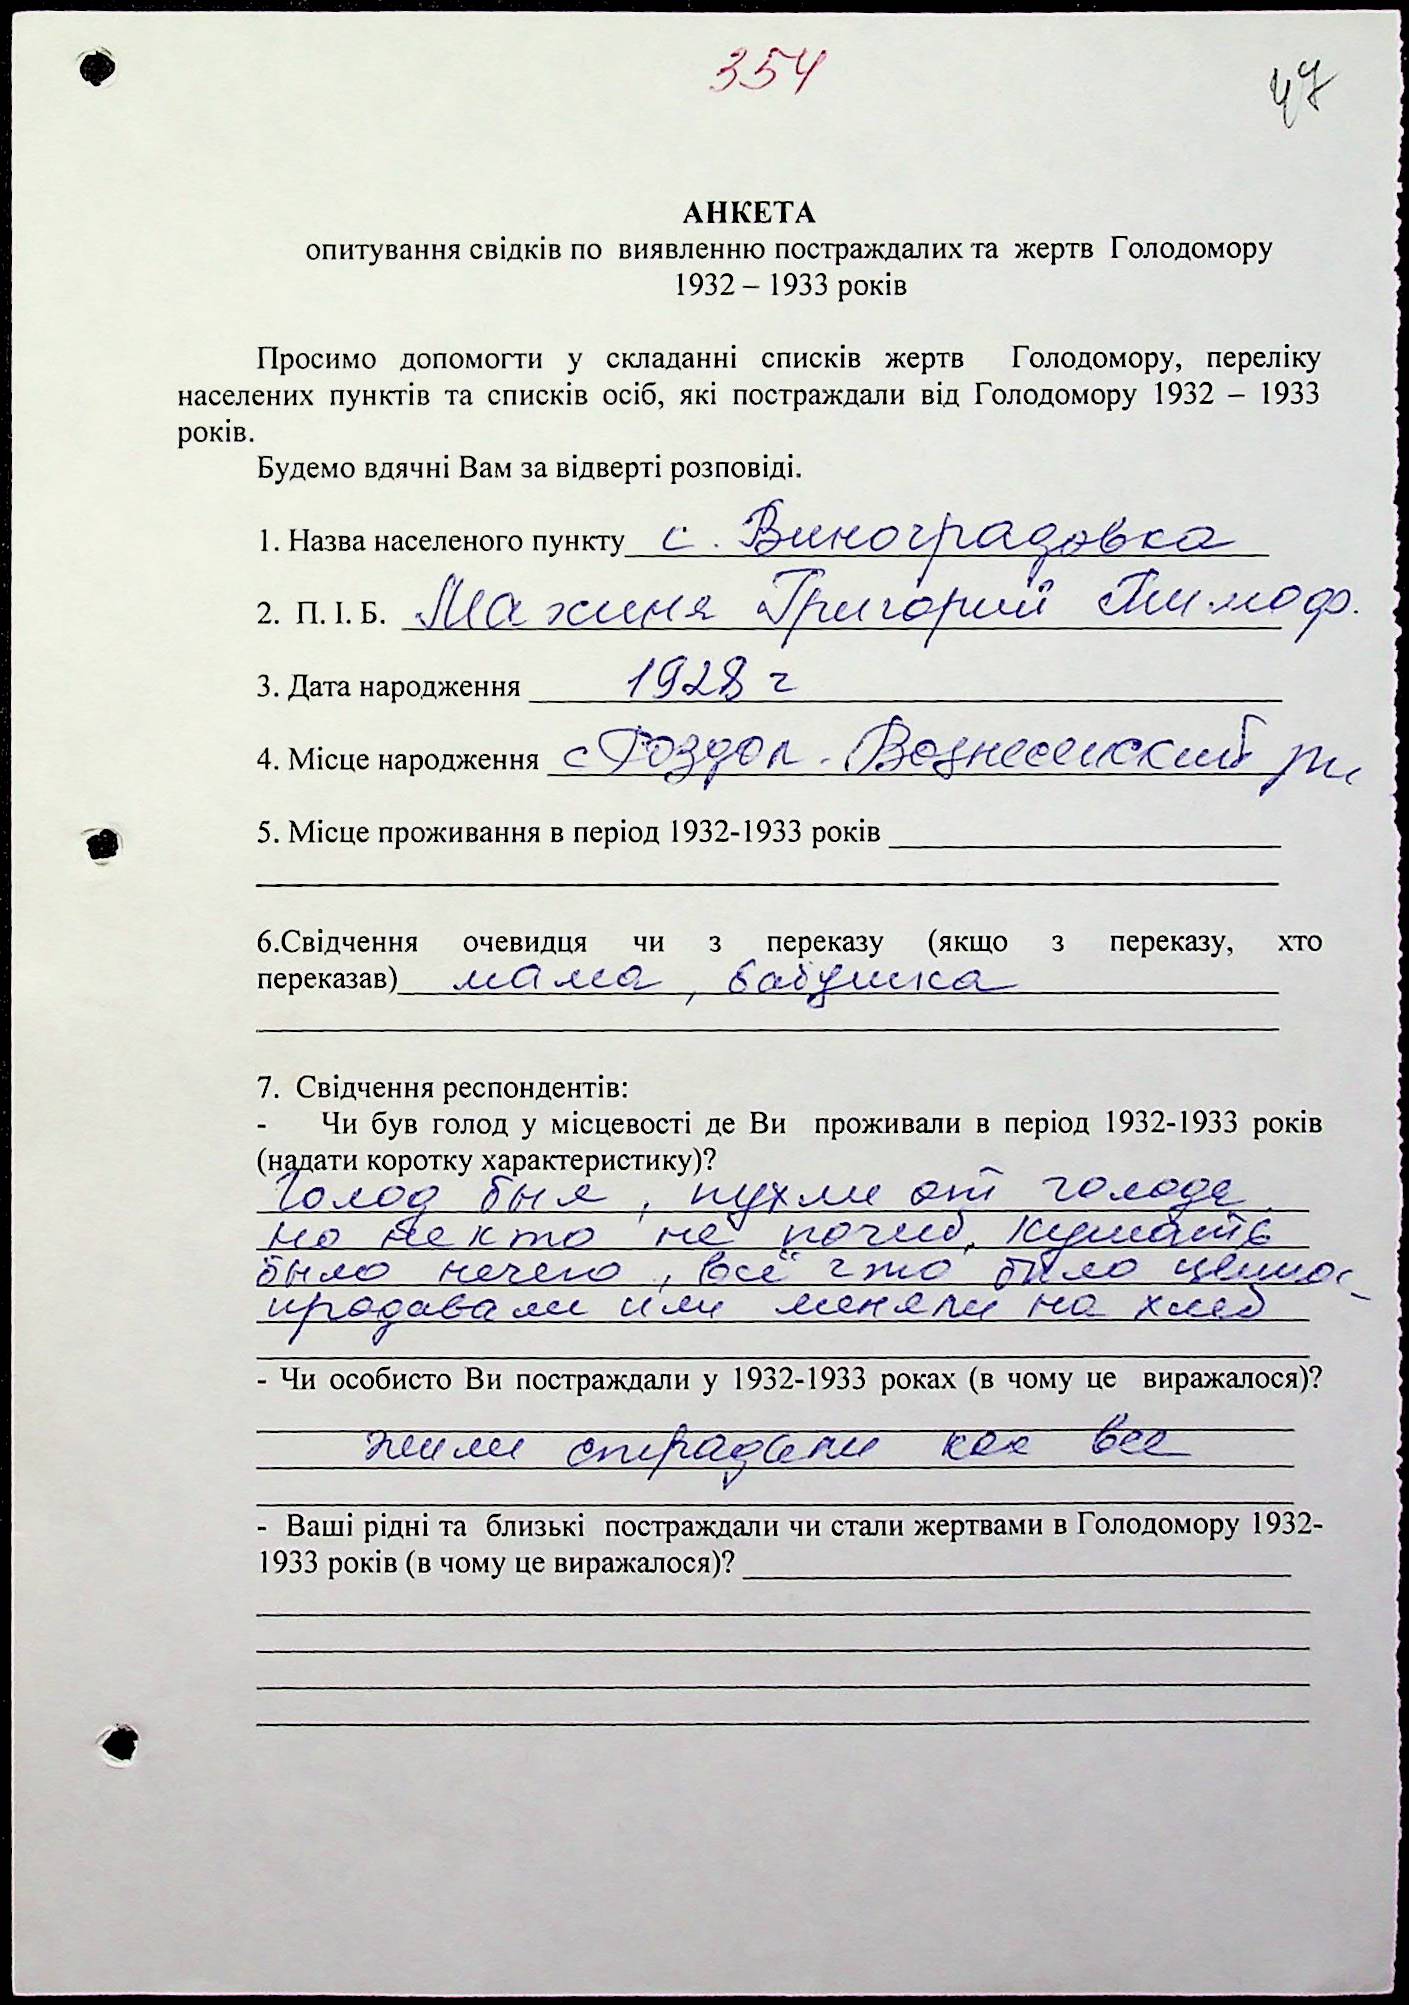 354
47
АНКЕТА
опитування свідків по виявленню постраждалих та жертв Голодомору
1932 – 1933 років
Просимо допомогти у складанні списків жертв Голодомору, переліку
населених пунктів та списків осіб, які постраждали від Голодомору 1932 – 1933
років.
Будемо вдячні Вам за відверті розповіді.
1. Назва населеного пункту с. Виноградовка
2. П. І. Б. Махиня Григорий Тимоф.
3. Дата народження 1928 г
4. Місце народження с Роздол. Вознесенский
5. Місце проживання в період 1932-1933 років
6.Свідчення очевидця чи з переказу (якщо з переказу, хто
переказав) мама, бабушка
7. Свідчення респондентів:
- Чи був голод у місцевості де Ви проживали в період 1932-1933 років
(надати коротку характеристику)?
Голод был, пухли от голода
но некто не погиб, кушать
было нечего, всё что было ценнос-
продавали или меняли на хлеб
- Чи особисто Ви постраждали у 1932-1933 роках (в чому це виражалося)?
жили страдали как все
- Ваші рідні та близькі постраждали чи стали жертвами в Голодомору 1932-
1933 років (в чому це виражалося)?